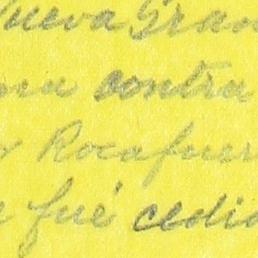 Nueva Gran
contra
Rocafuer
fué cedid